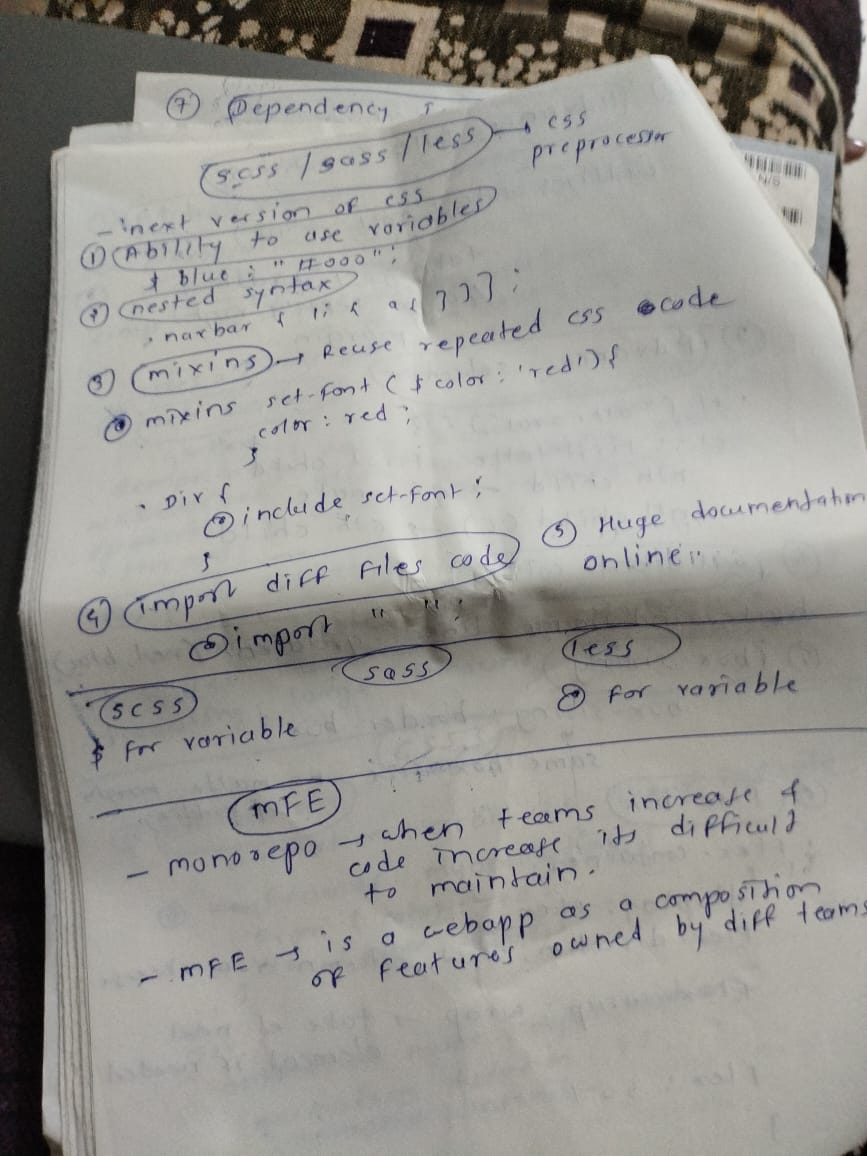 ⑦ Dependency
scss / sass / less → css
preprocessor
- next version of css
① Ability to use variables
$ blue : "#000";
② nested syntax
. navbar { li { a { } } } ;
③ mixins → Reuse repeated css code
@ mixins set-font ( $ color : 'red' ) {
color : red ;
}
. Div {
@ include set-font ;
}
④ import diff files code
@ import " " ;
⑤ Huge documentation
online
scss sass less
$ for variable @ for variable
MFE
- monorepo → when teams increase &
code increase its difficult
to maintain.
- MFE → is a webapp as a composition
of features owned by diff teams